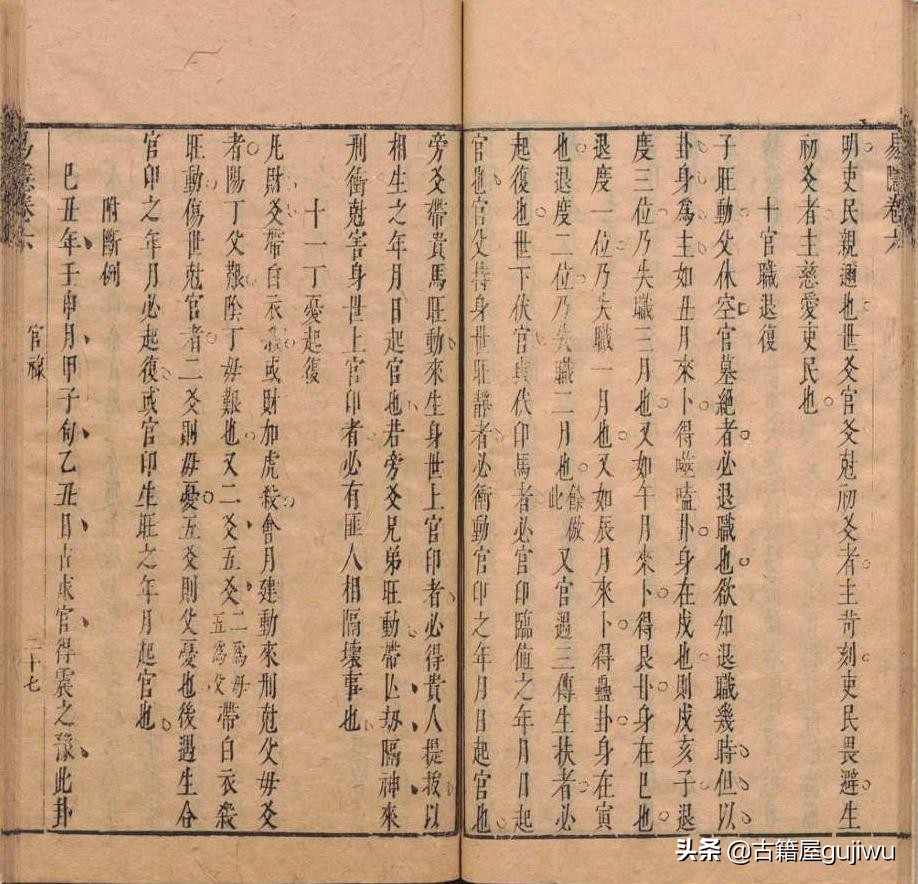 易隱卷六
明吏民親邇也世爻官爻尅初爻者主苛刻吏民畏避生
初爻者主慈愛吏民也
十官職退復
子旺動父休空官墓絕者必退職也欲知退職幾時但以
卦身爲主如丑月來卜得噬嗑卦身在戌也則戌亥子退
度三位乃失職三月也又如午月來卜得艮卦身在巳也
退度一位乃失職一月也又如辰月來卜得蠱卦身在寅
也退度二位乃失職二月也餘倣此又官遇三傳生扶者必
起復也世下伏官與伏印馬者必官印臨值之年月日起
官也官父持身世旺靜者必衝動官印之年月日起官也
旁爻帶貴馬旺動來生身世上官印者必得貴人提拔以
相生之年月日起官也若旁爻兄弟旺動帶亡劫隔神來
刑衝尅害身世上官印者必有匪人相隔壞事也
十一丁憂起復
凡財爻帶白衣殺或財加虎殺會月建動來刑尅父母爻
者陽丁父艱陰丁母艱也又二爻五爻二爲母五爲父帶白衣殺
旺動傷世尅官者二爻則母憂五爻則父憂也後遇生合
官印之年月必起復或官印生旺之年月起官也
附斷例
己丑年壬申月甲子旬乙丑日占求官得震之豫此卦
易隱卷六
官祿
二十七
头条 @古籍屋gujiwu